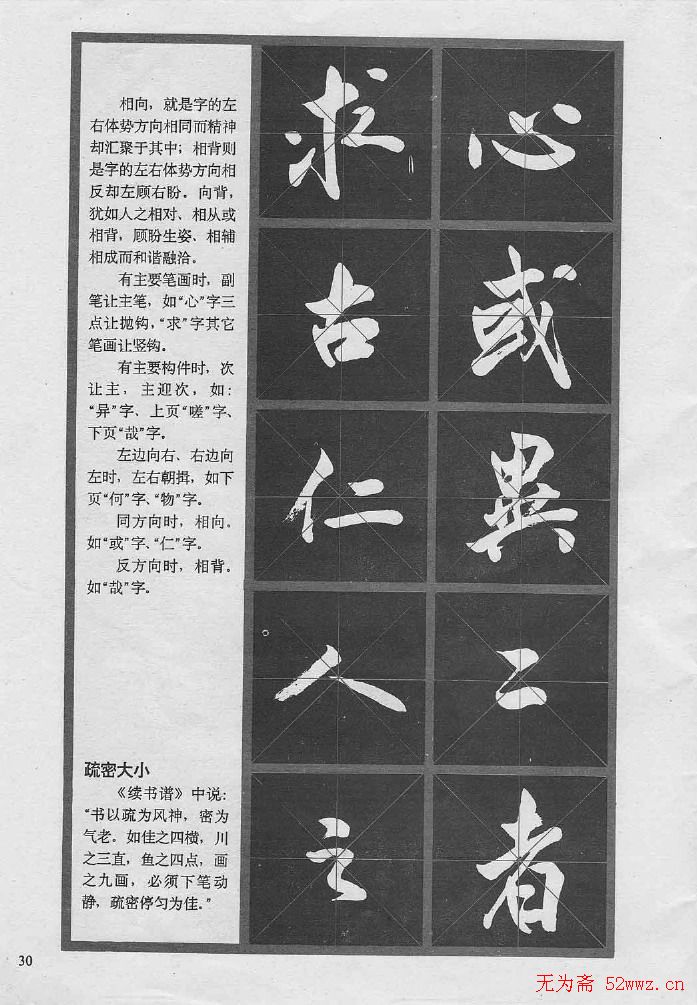 相向，就是字的左
右体势方向相同而精神
却汇聚于其中；相背则
是字的左右体势方向相
反却左顾右盼。向背，
犹如人之相对、相从或
相背，顾盼生姿、相辅
相成而和谐融洽。
有主要笔画时，副
笔让主笔，如“心”字三
点让抛钩，“求”字其它
笔画让竖钩。
有主要构件时，次
让主，主迎次，如：
“异”字、上页“嗟”字、
下页“哉”字。
左边向右、右边向
左时，左右朝揖，如下
页“何”字、“物”字。
同方向时，相向。
如“或”字、“仁”字。
反方向时，相背。
如“哉”字。
疏密大小
《续书谱》中说：
“书以疏为风神，密为
气老。如佳之四横，川
之三直，鱼之四点，画
之九画，必须下笔动
静，疏密停匀为佳。”
求古仁人之
心或異二者
30
无为斋 52wwz.cn